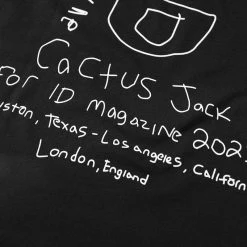 Cactus Jack
For ID Magazine 202
uston, Texas - Los angeles, Californ
London, England